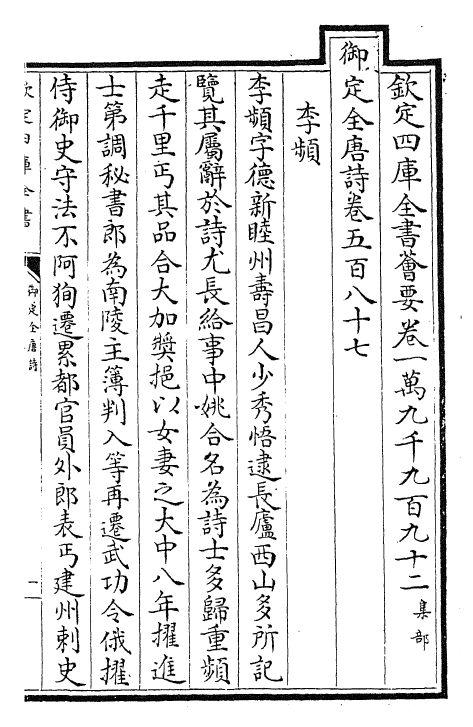 欽定四庫全書薈要卷一萬九千九百九十二集部
御定全唐詩卷五百八十七
李頻
李頻字德新睦州壽昌人少秀悟逮長廬西山多所記
覽其屬辭於詩尤長給事中姚合名為詩士多歸重頻
走千里丐其品合大加奬挹以女妻之大中八年擢進
士第調秘書郎為南陵主簿判入等再遷武功令俄擢
侍御史守法不阿狥遷累都官員外郎表丐建州刺史
欽定四庫全書
御定全唐詩
一